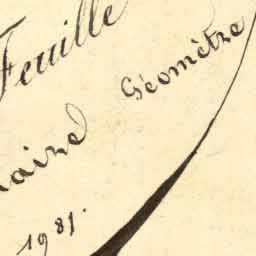 Feuille
Géomètre
1981.